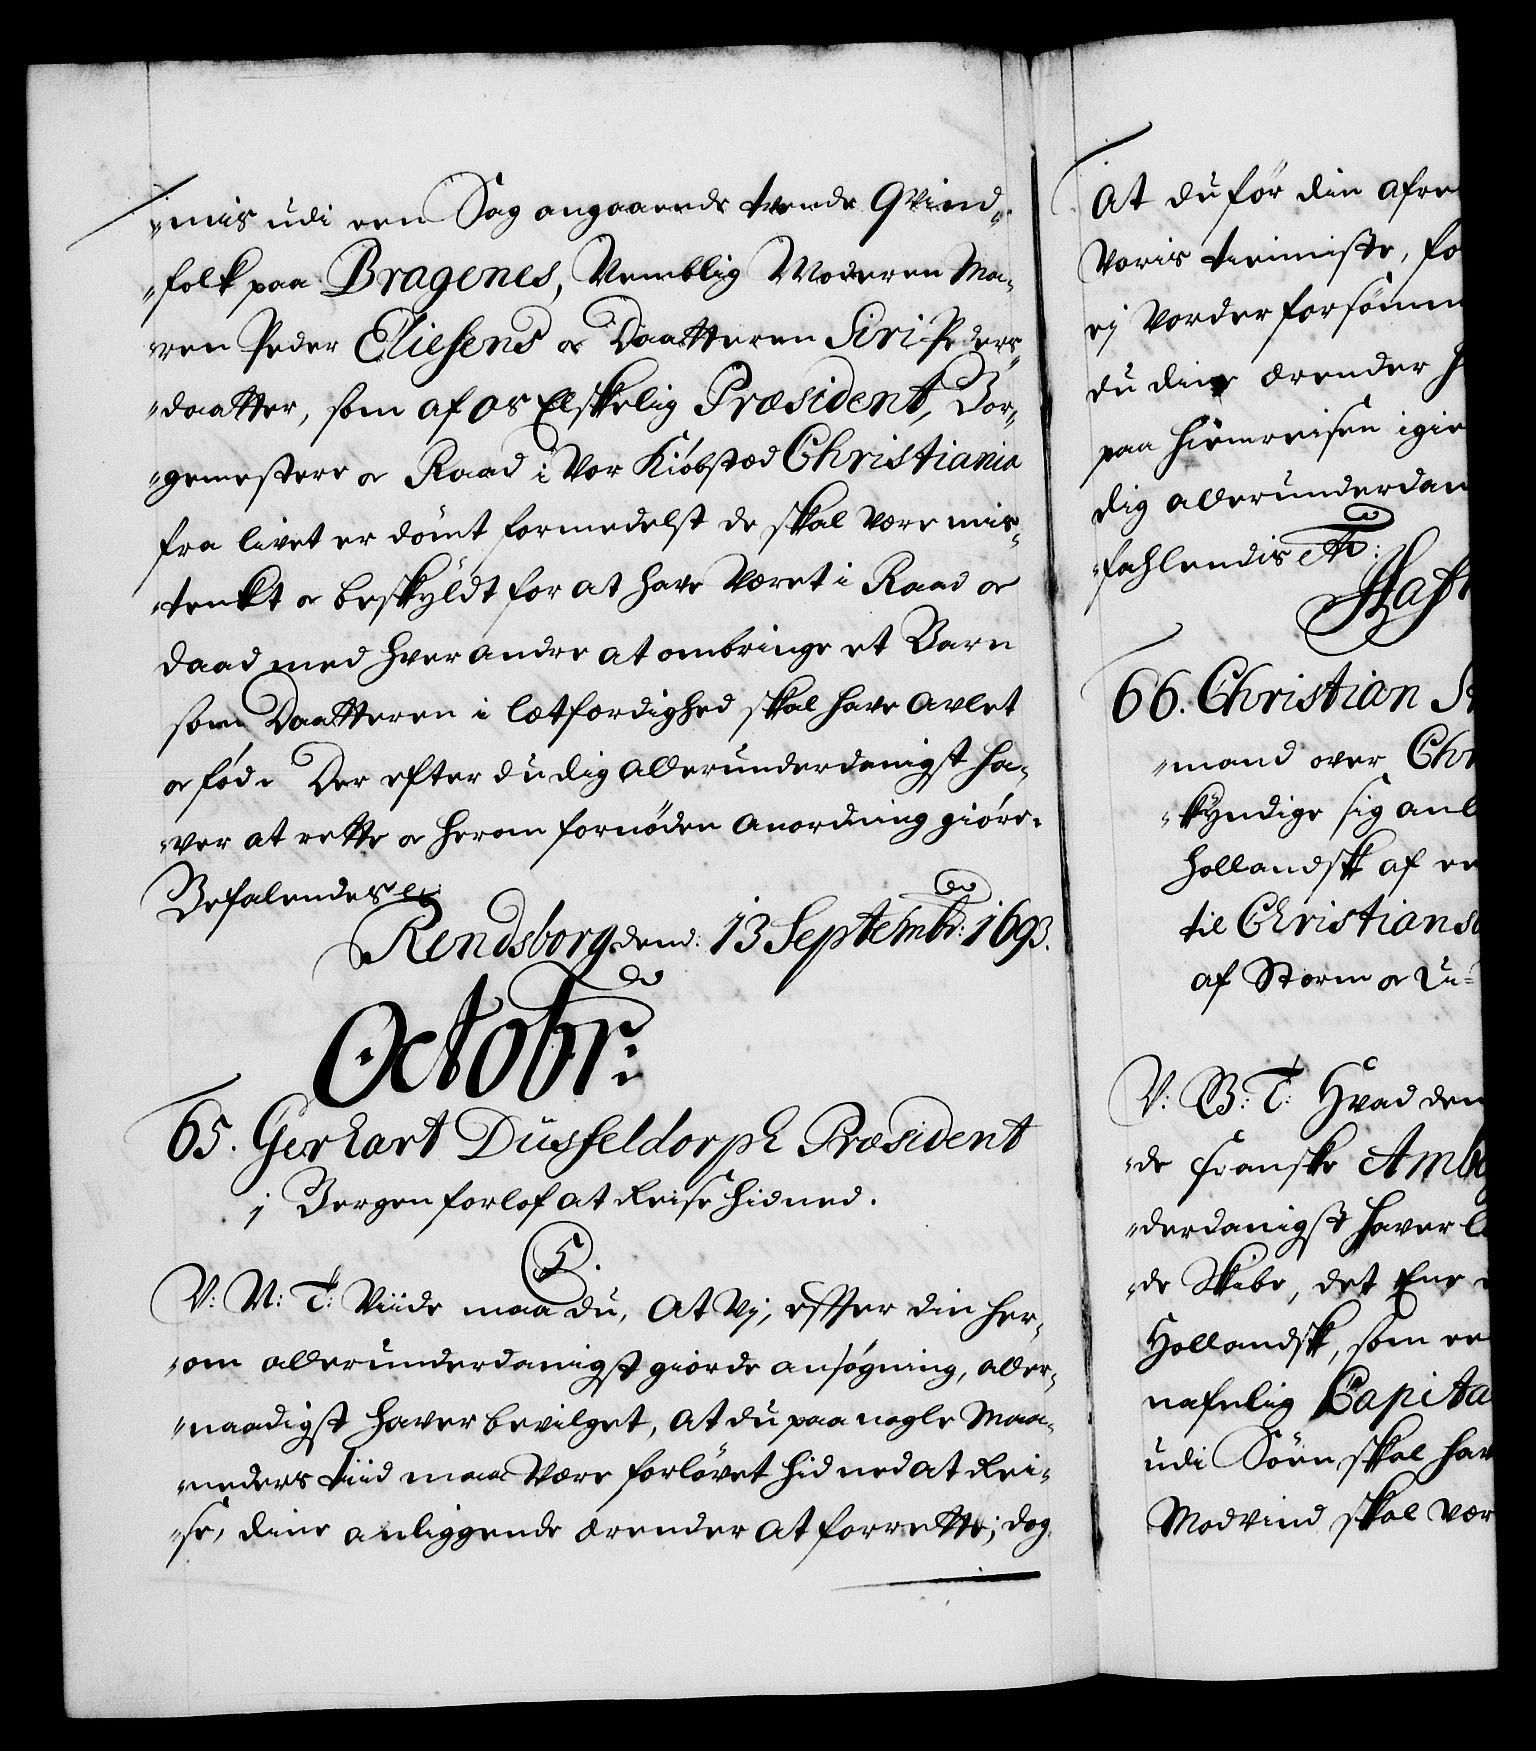 -mis udi een Sag angaaende tvende Qvind-
-folk paa Bragenes, Nemblig Moderen Ma-
-ren Peder Eliesens oc Daatteren Siri Peders-
-daatter, som af os Elskelig Præsident, Bor-
-gemestere oc Raad i Vor Kiøbstæd Christiania
fra livet er dømt formedelst de skal være mis-
-tenkt oc beskyldt for at have været i Raad oc
daad med hver andre at ombringe et Barn
som Daatteren i letferdighed skal have avlet
oc fød. Der efter du dig allerunderdanigst ha-
-ver at rette oc herom fornøden anordning giøre.
Befalendes etc:
Rendsborg dend: 13 Septembr: 1693.
Octobr:
65. Gerhart Düsfeldorph Præsident
i Bergen forlof at Reise hidned.
5.
V: N: T: Viide maa du, At Vj, effter din her-
-om allerunderdanigst giorde ansøgning, aller-
-naadigst haver bevilget, at du paa nogle Maa-
-neders tiid maa være forlovet hid ned at Rei-
-se, dine anliggende ærender at forrette; dog
At du før din afre
Voris tienniste, fo
ej vorder forsømm
du dine ærender h
paa hiemreisen igie
dig allerunderdan
-fahlendis etc:
Haf
66. Christian St
-mand over Chr
-kyndige sig anl
Hollandsk af
til Christians
af Storm oc U-
V: G: T: Hvad den
-de franske Amba
-derdanigst haver l
-de Skibe, det Ene
Hollandsk, som
nafnlig Capita
udi Søen skal hav
Modvind skal vær